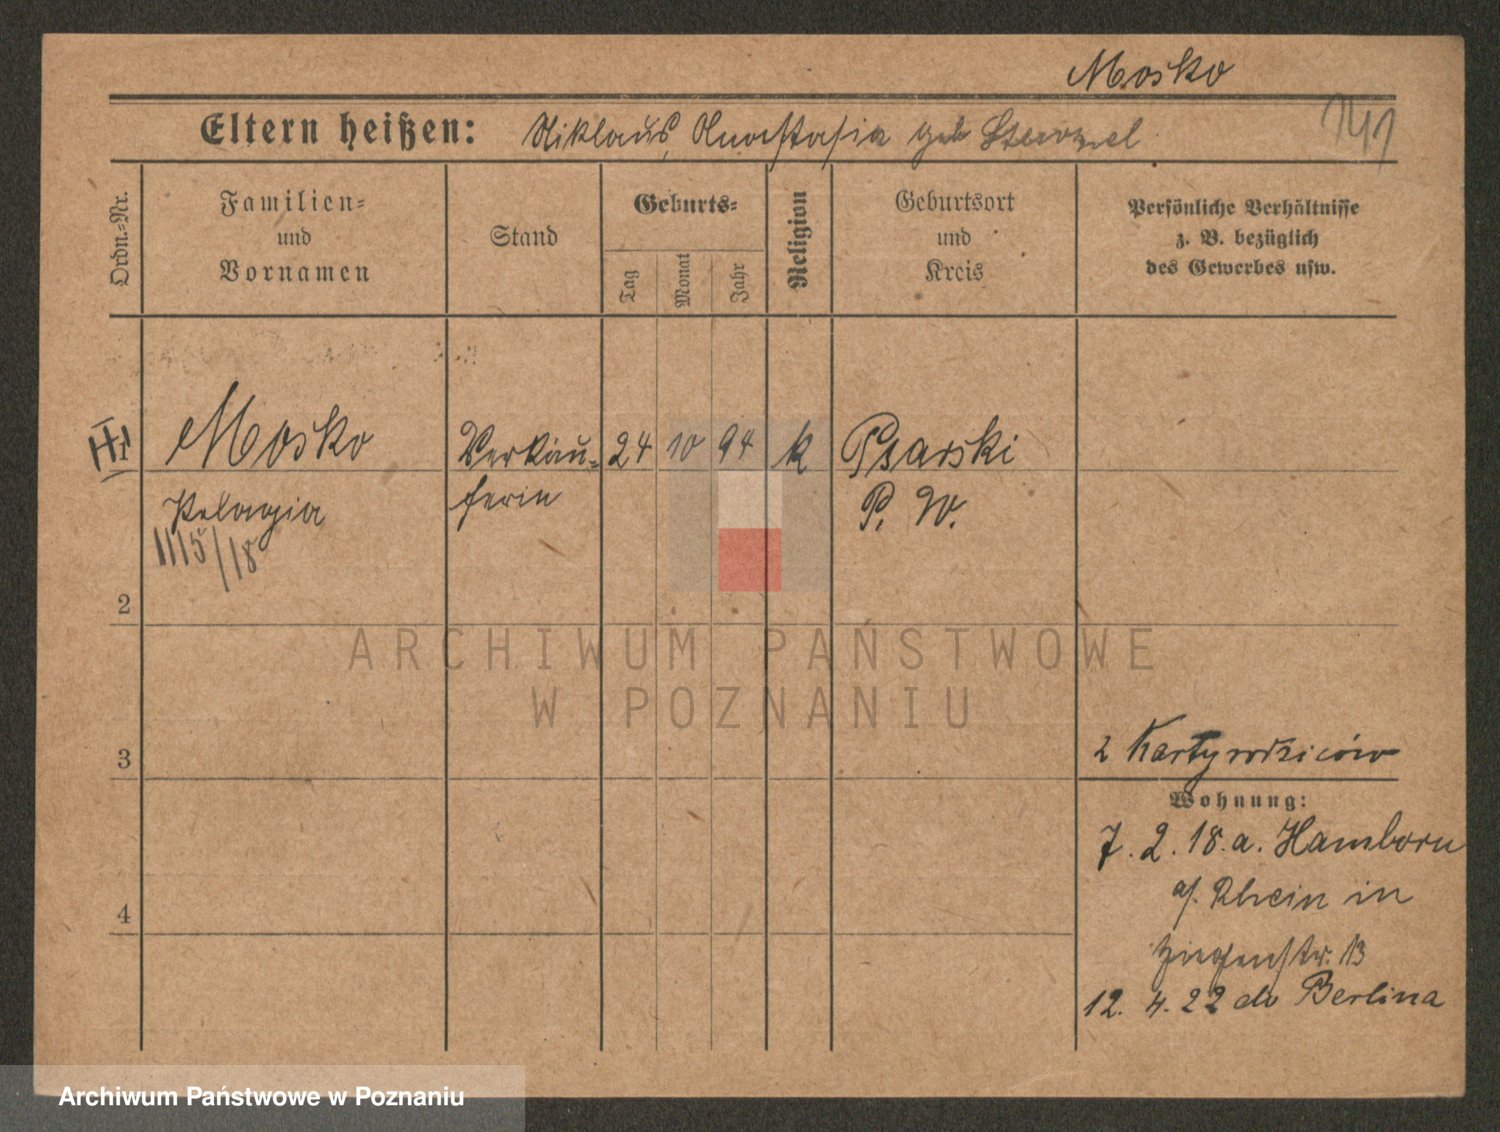 Mosko
Eltern heißen: Niklaus, Anastasia geb
141
Ordn.=Nr.
Familien=
und
Vornamen
Stand
Geburts=
Tag
Monat
Jahr
Religion
Geburtsort
und
Kreis
Persönliche Verhältnisse
z. B. bezüglich
des Gewerbes usw.
Mosko Verkäu= 24 10 94 k Psarski
Pelagia ferin P. W.
1115/18
2
3
4
2 Karty rodziców
Wohnung:
7. 2. 18. a. Hamborn
a/. Rhein in
12. 4. 22 do Berlina
ARCHIWUM PAŃSTWOWE
W POZNANIU
Archiwum Państwowe w Poznaniu